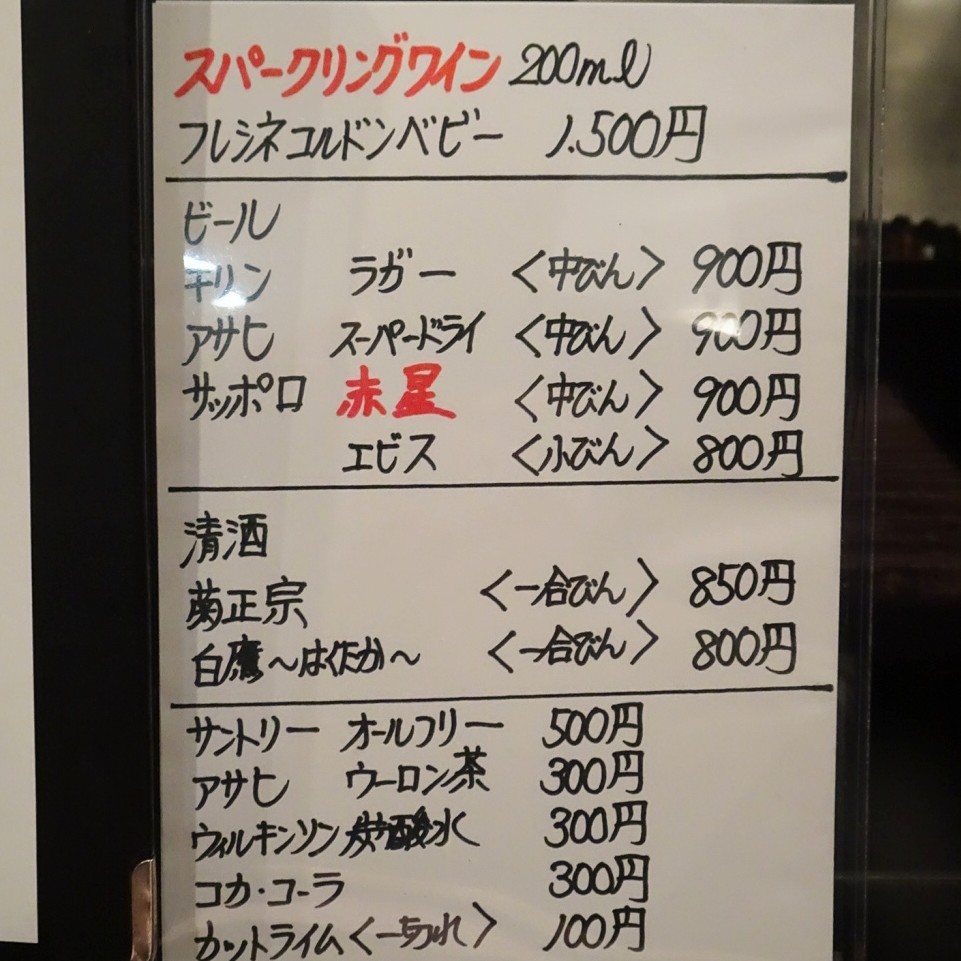 スパークリングワイン 200ml
フレシネコルドンベビー 1.500円
ビール
キリン ラガー 〈中びん〉 900円
アサヒ スーパードライ 〈中びん〉 900円
サッポロ 赤星 〈中びん〉 900円
エビス 〈小びん〉 800円
清酒
菊正宗 〈一合びん〉 850円
白鷹～はくたか～ 〈一合びん〉 800円
サントリー オールフリー 500円
アサヒ ウーロン茶 300円
ウィルキンソン炭酸水 300円
コカ・コーラ 300円
カットライム〈一切れ〉 100円